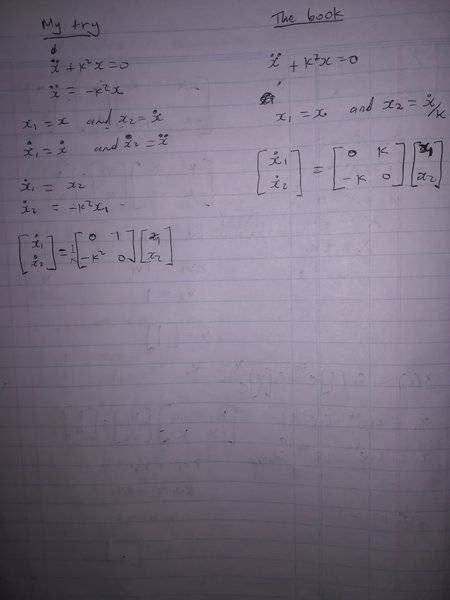 My try
ẍ + k²x = 0
ẍ = -k²x
x₁ = x and x₂ = ẋ
ẋ₁ = ẋ and ẋ₂ = ẍ
ẋ₁ = x₂
ẋ₂ = -k²x₁
[ẋ₁ ẋ₂] = [0 1 -k² 0] [x₁ x₂]
The book
ẍ + k²x = 0
x₁ = x and x₂ = ẋ/k
[ẋ₁ ẋ₂] = [0 k -k 0] [x₁ x₂]